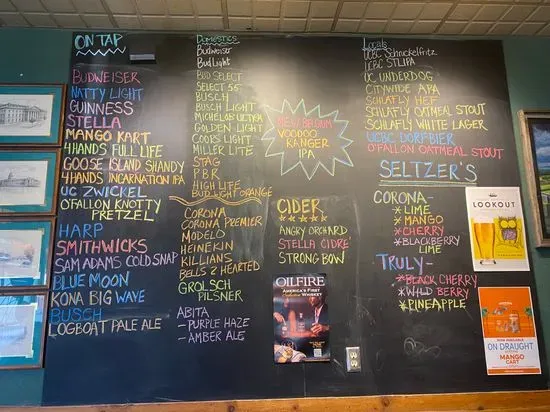 ON TAP
BUDWEISER
NATTY LIGHT
GUINNESS
STELLA
MANGO KART
4HANDS FULL LIFE
GOOSE ISLAND SHANDY
4HANDS INCARNATION IPA
UC ZWICKEL
O'FALLON KNOTTY
PRETZEL
HARP
SMITHWICKS
SAM ADAMS COLD SNAP
BLUE MOON
KONA BIG WAVE
BUSCH
LOGBOAT PALE ALE
DOMESTICS
BUDWEISER
BUD LIGHT
BUD SELECT
SELECT 55
BUSCH
BUSCH LIGHT
MICHELOB ULTRA
GOLDEN LIGHT
COORS LIGHT
MILLER LITE
STAG
PBR
HIGH LIFE
BUD LIGHT ORANGE
CORONA
CORONA PREMIER
MODELO
HEINEKIN
KILLIANS
BELLS 2 HEARTED
GROLSCH
PILSNER
ABITA
- PURPLE HAZE
- AMBER ALE
NEW BELGIUM
VOODOO
RANGER
IPA
CIDER
ANGRY ORCHARD
STELLA CIDRE'
STRONG BOW
OILFIRE
AMERICA'S FIRST
WHISKEY
LOCALS
UCBC SCHNICKELFRITZ
UCBC STLIPA
UC UNDERDOG
CITYWIDE APA
SCHLAFLY HEF
SCHLAFLY OATMEAL STOUT
SCHLAFLY WHITE LAGER
UCBC DORFBIER
O'FALLON OATMEAL STOUT
SELTZER'S
CORONA-
*LIME
*MANGO
*CHERRY
*BLACKBERRY
LIME
TRULY-
*BLACK CHERRY
*WILD BERRY
*PINEAPPLE
LOOKOUT
NOW AVAILABLE
ON DRAUGHT
MANGO
CART